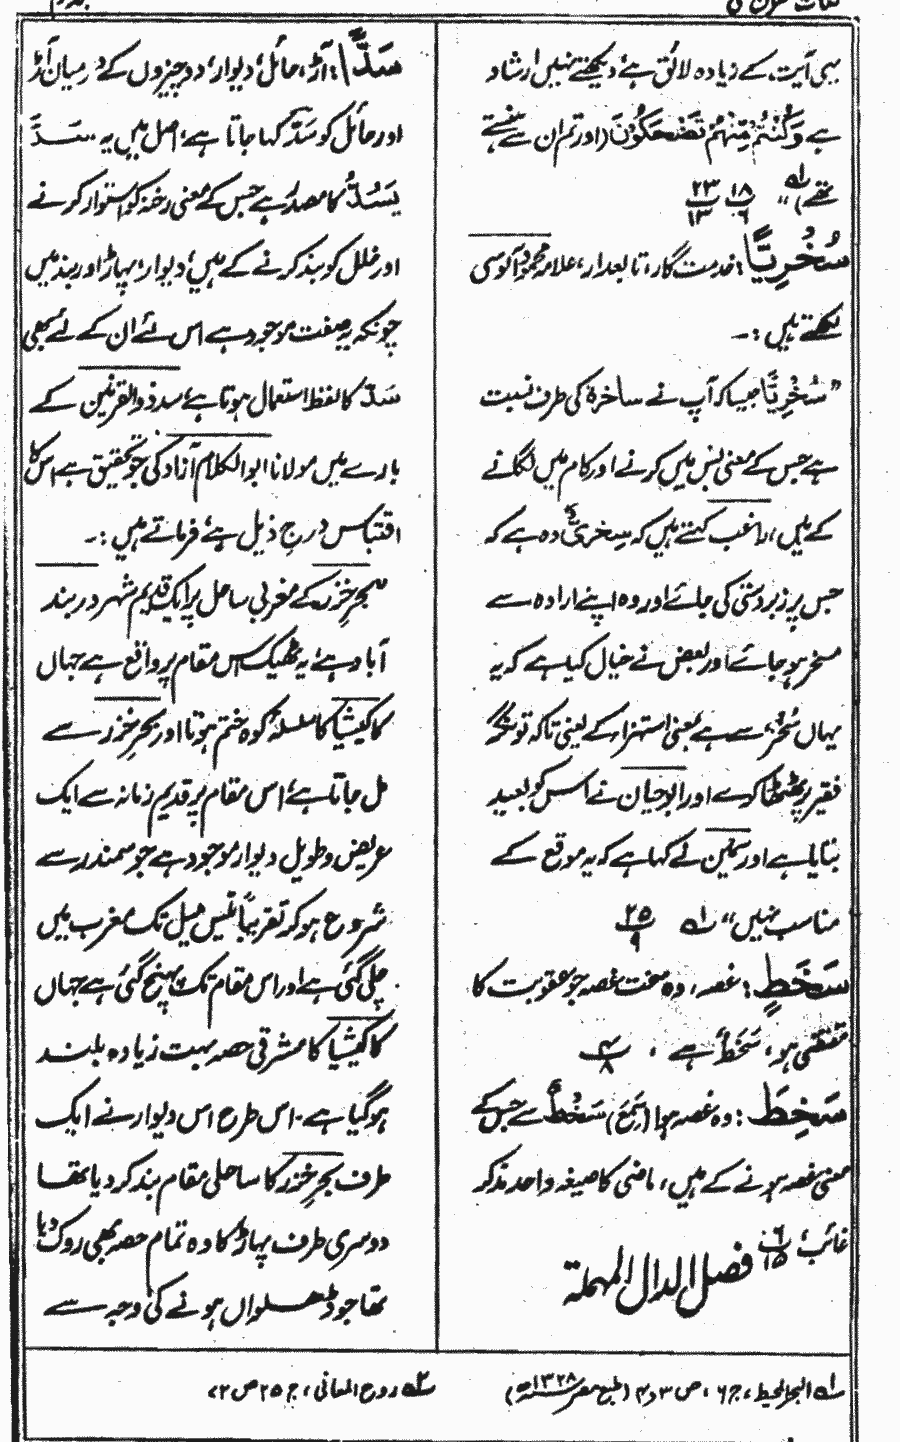 یہی آیت، کے زیادہ لائق ہے، دیکھئے نہیں ارشاد
ہے وَكُنْتُمْ مِّنْهُمْ تَضْحَكُوْنَ (اور تم ان سے ہنستے
تھے)" لہ ۱۸/۶ ۲۳/۱۳
سُخْرِيًّا : خدمت گار، تابعدار، علامہ محمود آلوسی
لکھتے ہیں :۔
"سُخْرِيًّا جیسا کہ آپ نے ساخرۃ کی طرف نسبت
ہے جس کے معنی بس میں کرنے اور کام میں لگانے
کے ہیں، راغب کہتے ہیں کہ سخریّ وہ ہے کہ
جس پر زبردستی کی جائے اور وہ اپنے ارادہ سے
مسخر ہو جائے اور بعض نے خیال کیا ہے کہ یہ
یہاں سُخْرٌ سے ہے بمعنی استہزار کے یعنی تاکہ تونگر
فقیر پر ٹھٹھا کرے اور ابو حیان نے اس کو بعید
بتایا ہے اور سمین نے کہا ہے کہ یہ موقع کے
مناسب نہیں" لہ ۲۵/۹
سَخَطٍ : غصہ، وہ سخت غصہ جو عقوبت کا
مقتضی ہو، سَخَطٌ ہے ، ۴/۸
سَخِطَ : وہ غصہ ہوا (سَمِعَ) سَخْطٌ سے جس کے
معنی غصہ ہونے کے ہیں، ماضی کا صیغہ واحد مذکر
غائب ۶/۱۵
فصل الدال المہملۃ
سَدًّا : آڑ، حائل، دیوار، دو چیزوں کے درمیان آڑ
اور حائل کو سَدّ کہا جاتا ہے، اصل میں یہ سَدَّ
یَسُدُّ کا مصدر ہے جس کے معنی رخنہ کو استوار کرنے
اور خلل کو بند کرنے کے ہیں، دیوار، پہاڑ اور بند میں
چونکہ یہ صفت موجود ہے اس لئے ان کے لئے بھی
سَدّ کا لفظ استعمال ہوتا ہے، سد ذوالقرنین کے
بارے میں مولانا ابوالکلام آزاد کی جو تحقیق ہے اس کا
اقتباس درج ذیل ہے، فرماتے ہیں :۔
"بحرِ خزر کے مغربی ساحل پر ایک قدیم شہر دربند
آباد ہے، یہ ٹھیک اس مقام پر واقع ہے جہاں
کاکیشیا کا سلسلۂ کوہ ختم ہوتا اور بحرِ خزر سے
مل جاتا ہے، اس مقام پر قدیم زمانہ سے ایک
عریض و طویل دیوار موجود ہے جو سمندر سے
شروع ہو کر تقریباً تیس میل تک مغرب میں
چلی گئی ہے اور اس مقام تک پہنچ گئی ہے جہاں
کاکیشیا کا مشرقی حصہ بہت زیادہ بلند
ہو گیا ہے۔ اس طرح اس دیوار نے ایک
طرف بحرِ خزر کا ساحلی مقام بند کر دیا تھا
دوسری طرف پہاڑ کا وہ تمام حصہ بھی روک دیا
تھا جو ڈھلواں ہونے کی وجہ سے
لہ البحر المحیط، ج ۶، ص ۳ و ۴ (طبع مصر ۱۳۲۸ھ)
۲ہ روح المعانی، ج ۲۵ ص ۷۲